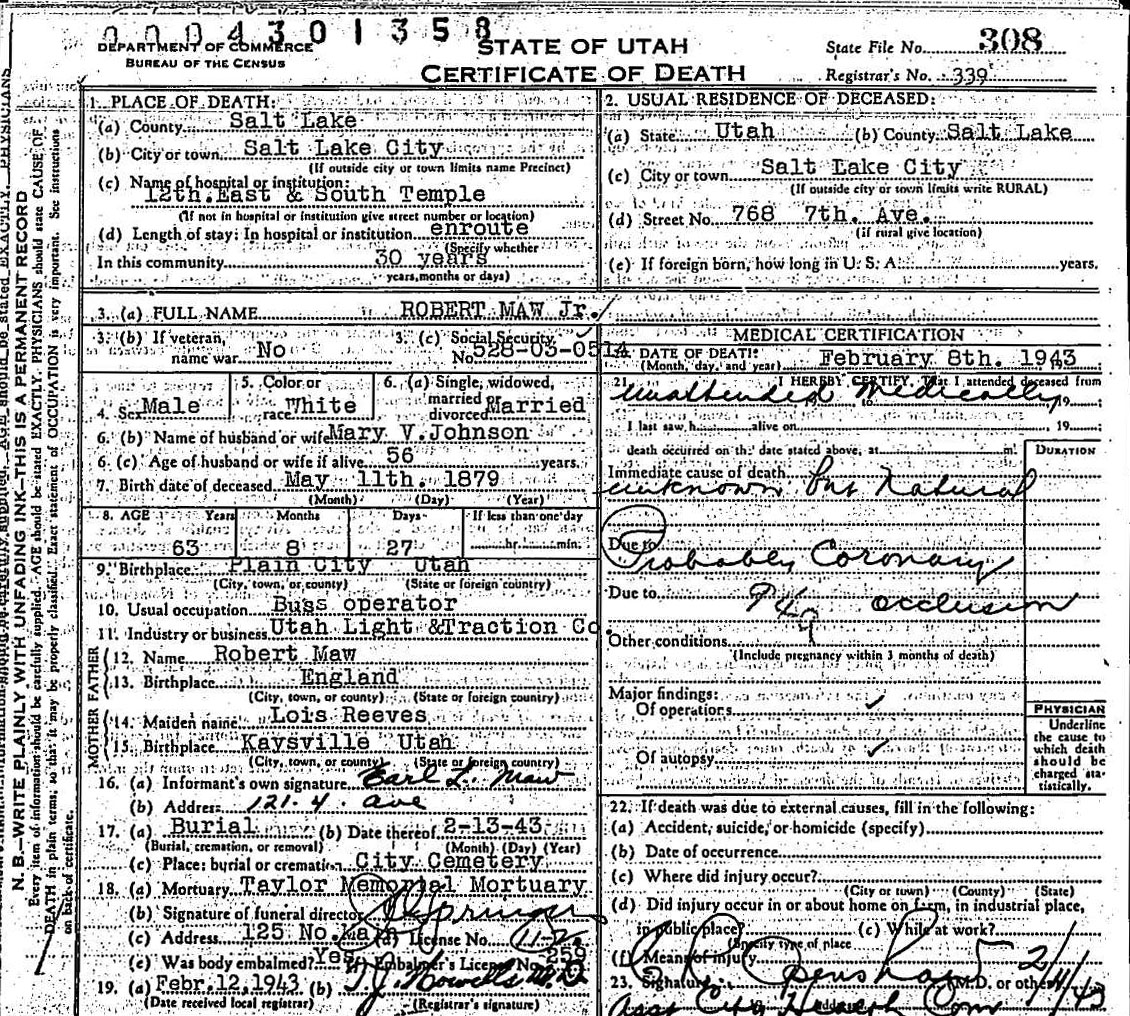 0004301358
DEPARTMENT OF COMMERCE
BUREAU OF THE CENSUS
STATE OF UTAH
CERTIFICATE OF DEATH
State File No. 308
Registrar's No. 339
1. PLACE OF DEATH:
(a) County Salt Lake
(b) City or town Salt Lake City
(If outside city or town limits name Precinct)
(c) Name of hospital or institution:
12th.East & South Temple
(If not in hospital or institution give street number or location)
(d) Length of stay: In hospital or institution enroute
(Specify whether
In this community 30 years
years, months or days)
2. USUAL RESIDENCE OF DECEASED:
(a) State Utah (b) County Salt Lake
(c) City or town Salt Lake City
(If outside city or town limits write RURAL)
(d) Street No. 768 7th. Ave.
(if rural give location)
(e) If foreign born, how long in U. S. A. years.
3. (a) FULL NAME ROBERT MAW Jr.
3. (b) If veteran, name war No
3. (c) Social Security No. 528-03-0514
4. Sex Male
5. Color or race White
6. (a) Single, widowed, married or divorced Married
6. (b) Name of husband or wife Mary V.Johnson
6. (c) Age of husband or wife if alive 56 years.
7. Birth date of deceased May 11th. 1879
(Month) (Day) (Year)
8. AGE Years Months Days If less than one day
63 8 27 hr. min.
9. Birthplace Plain City Utah
(City, town, or county) (State or foreign country)
10. Usual occupation Buss operator
11. Industry or business Utah Light &Traction Co.
FATHER
12. Name Robert Maw
13. Birthplace England
(City, town, or county) (State or foreign country)
MOTHER
14. Maiden name Lois Reeves
15. Birthplace Kaysville Utah
(City, town, or county) (State or foreign country)
16. (a) Informant's own signature Earl L. Maw
(b) Address 121. 4. ave
17. (a) Burial (b) Date thereof 2-13-43
(Burial, cremation, or removal) (Month) (Day) (Year)
(c) Place: burial or cremation City Cemetery
18. (a) Mortuary Taylor Memorial Mortuary
(b) Signature of funeral director
(c) Address 125 No.Main (d) License No. 112
(e) Was body embalmed? Yes (f) Embalmer's License No. 259
19. (a) Febr.12,1943 (b) M.D
(Date received local registrar) (Registrar's signature)
MEDICAL CERTIFICATION
DATE OF DEATH: February 8th. 1943
(Month, day, and year)
21. I HEREBY CERTIFY, That I attended deceased from
unattended Medically to 19
I last saw h alive on , 19
death occurred on the date stated above, at m.
DURATION
Immediate cause of death
unknown but Natural
Due to
Probably Coronary
Due to 94a occlusion
Other conditions
(Include pregnancy within 3 months of death)
Major findings:
Of operations ✓
Of autopsy ✓
PHYSICIAN
Underline
the cause to
which death
should be
charged sta-
tistically.
22. If death was due to external causes, fill in the following:
(a) Accident, suicide, or homicide (specify)
(b) Date of occurrence
(c) Where did injury occur?
(City or town) (County) (State)
(d) Did injury occur in or about home on farm, in industrial place,
in public place? (e) While at work?
(Specify type of place
(f) Means of injury
23. Signature (M.D. or other) 2/11/43
Asst City Health Com
Address
N. B.—WRITE PLAINLY WITH UNFADING INK—THIS IS A PERMANENT RECORD
Every item of information should be carefully supplied. AGE should be stated EXACTLY. PHYSICIANS should state CAUSE OF
DEATH in plain terms, so that it may be properly classified. Exact statement of OCCUPATION is very important. See instructions
on back of certificate.